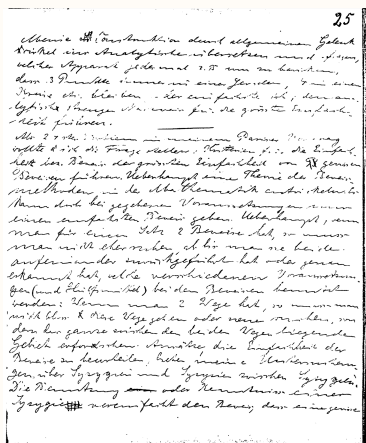 25
Konstruktion durch allgemeinen Gelenk
Zirkel ins Analytische übersetzen und fragen,
welcher Apparat jedesmal
dass 3 Punkte immer in einer Geraden, 4 in einer
Kreise etc. bleiben der einfachste ist, dann
die grösste Einfach-
heit führen.
Als 24stes Problem in meinem Pariser Vortrag
wollte ich die Frage stellen: Kriterien für die Einfach-
heit bez. Beweis der grössten Einfachheit von gewissen
Beweisen führen. Ueberhaupt eine Theorie der Beweis-
methoden in der Mathematik entwickeln. Es
kann doch bei gegebenen Voraussetzungen nur
einen einfachsten Beweis geben. Ueberhaupt, wenn
man für einen Satz 2 Beweise hat, so muss
man nicht eher ruhen, als bis man sie beide
aufeinander zurückgeführt hat oder genau
erkannt hat, welche verschiedenen Voraussetzun-
gen (und Hülfsmittel) bei den Beweisen benutzt
werden: Wenn man 2 Wege hat, so muss man
nicht bloss diese Wege gehen oder neue suchen, son-
dern das ganze zwischen den beiden Wegen liegende
Gebiet erforschen. Ansätze, die Einfachheit der
Beweise zu beurteilen, bieten meine Untersuchun-
gen über Syzygien und Syzygien zwischen Syzygien.
Die Benutzung oder Kenntnis einer
Syzygie vereinfacht den Beweis, dass eine gewisse